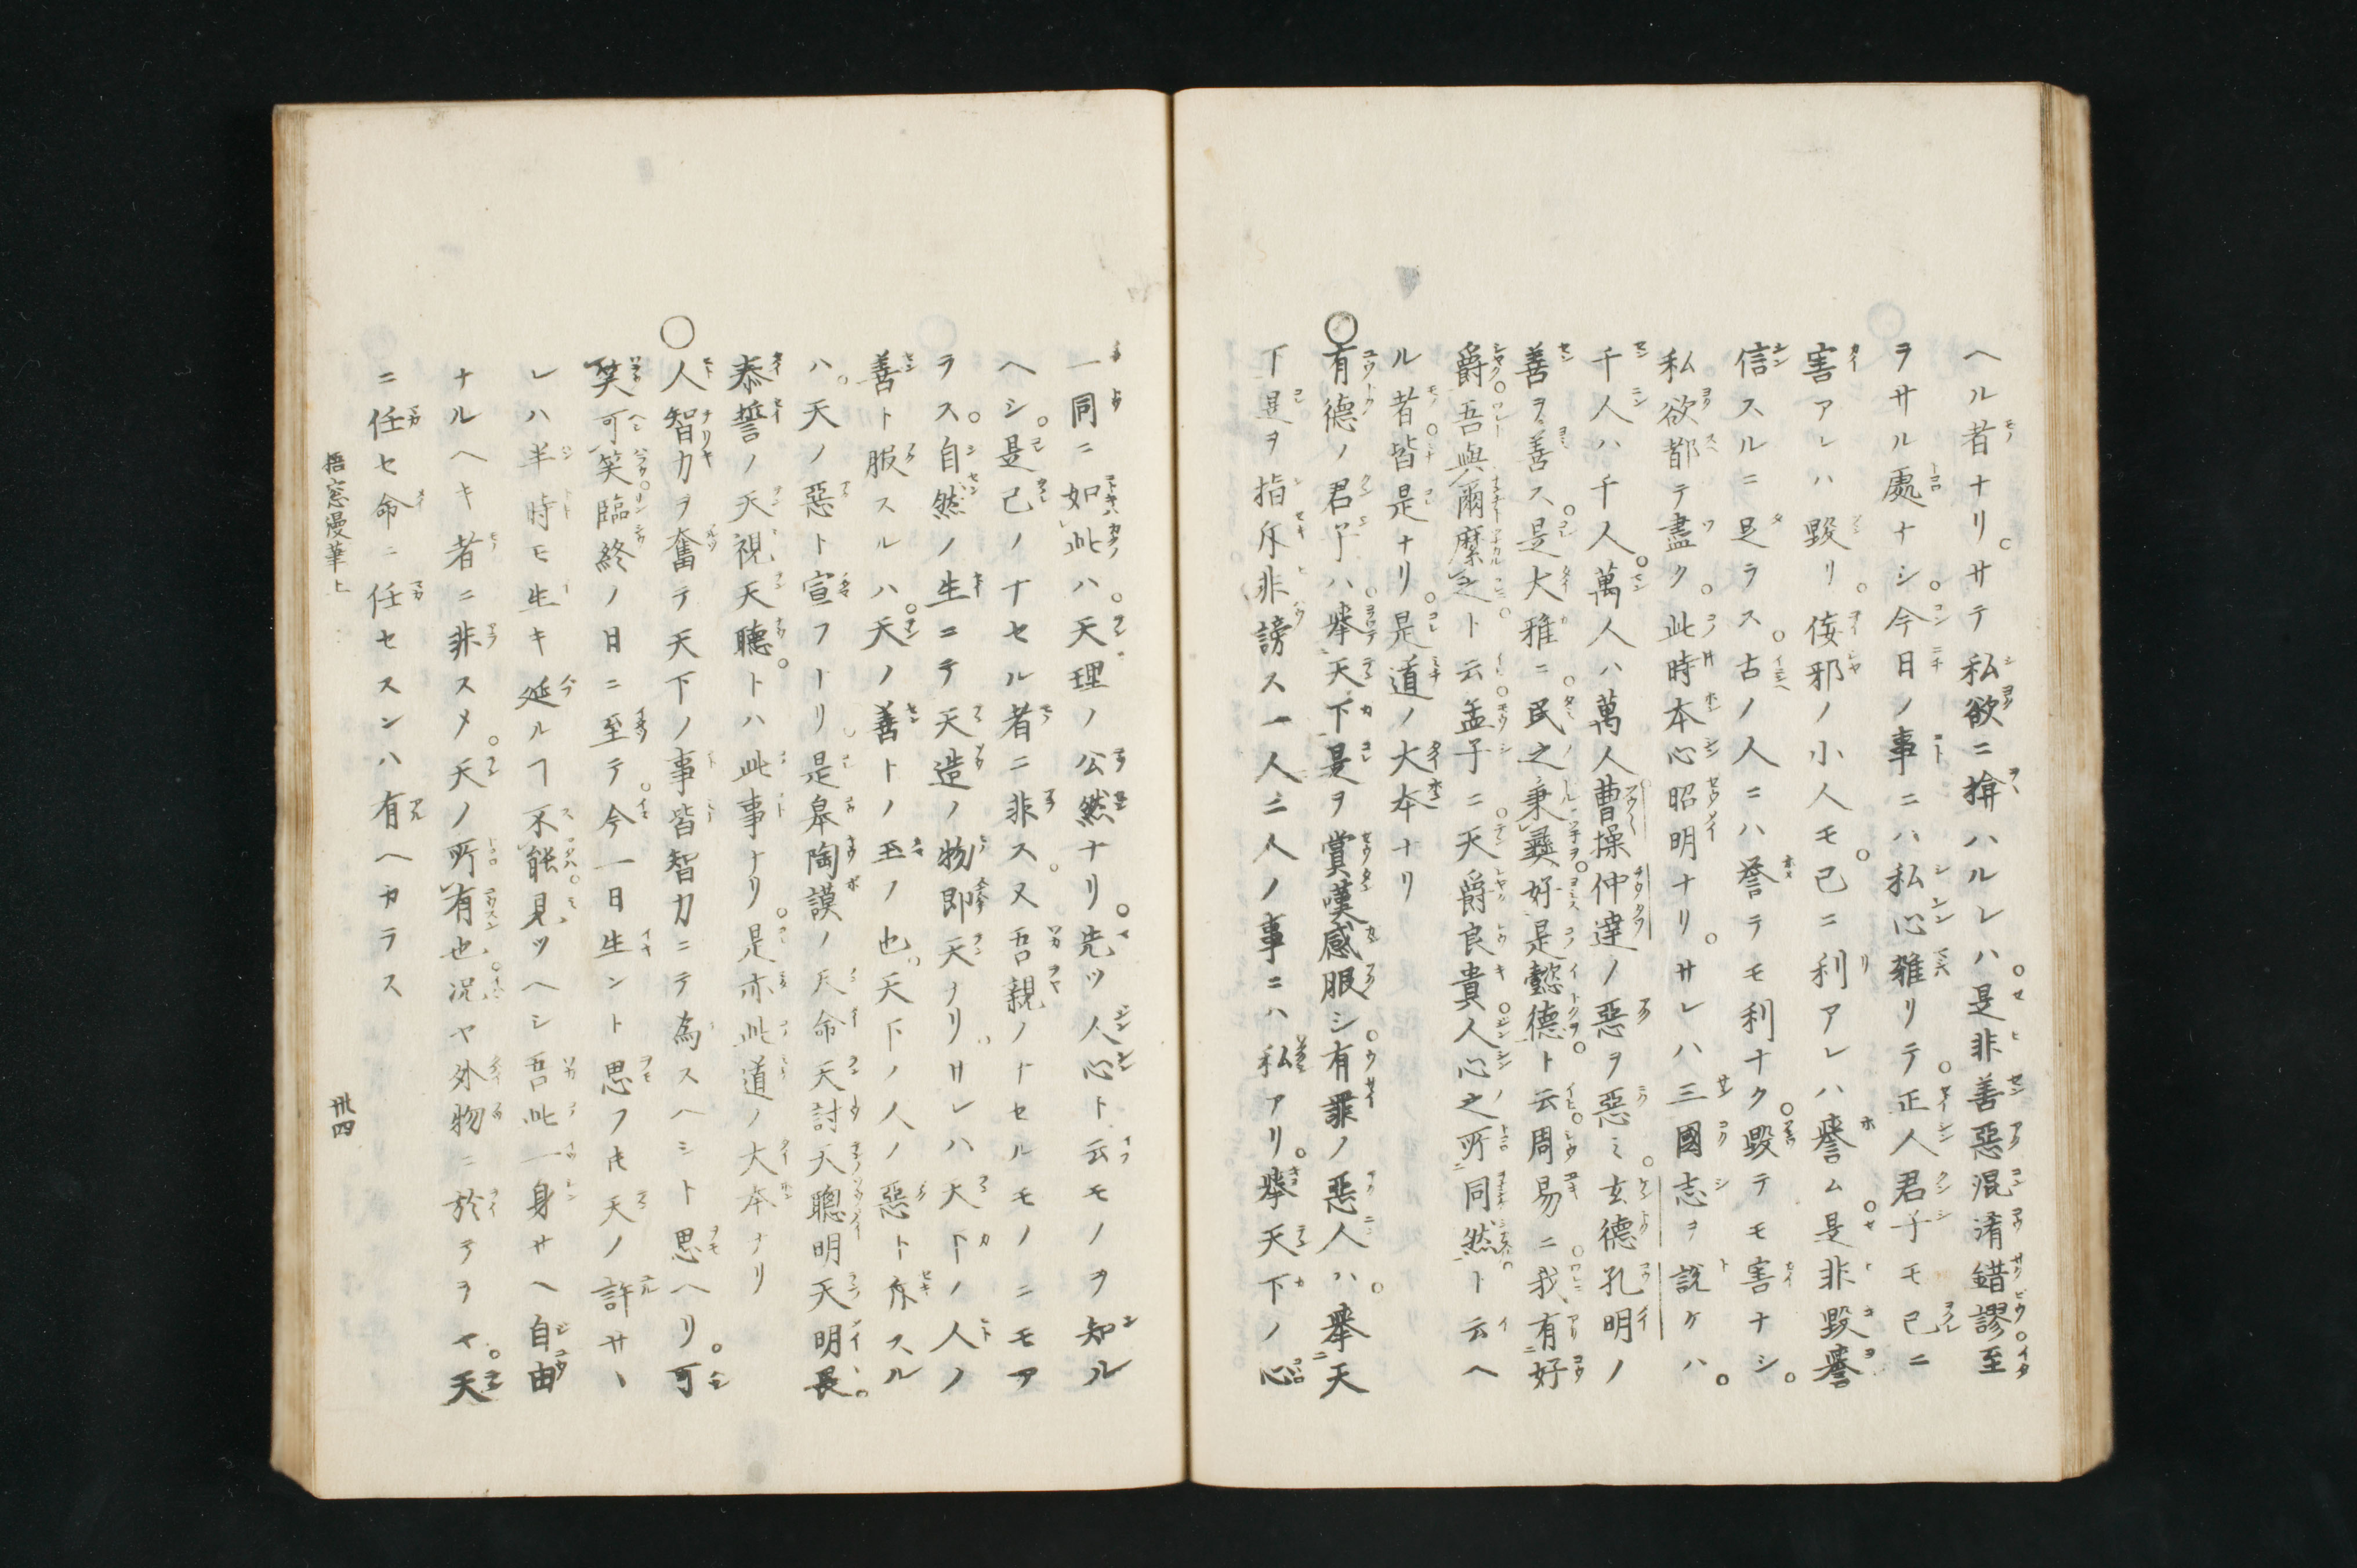 ヘル者ナリサテ私欲ニ揜ハルレハ是非善惡混淆錯謬至
ヲサル處ナシ今日ノ事ニハ私心雜リテ正人君子モ己ニ
害アレハ毀リ佞邪ノ小人モ己ニ利アレハ譽ム是非毀譽
信スルニ足ラス古ノ人ニハ譽テモ利ナク毀テモ害ナシ
私欲都テ盡ク此時本心昭明ナリサレハ三國志ヲ說ケハ
千人ハ千人萬人ハ萬人曹操仲達ノ惡ヲ惡ミ玄德孔明ノ
善ヲ善ス是大雅ニ民之秉彝好是懿德ト云周易ニ我有好
爵吾與爾縻之ト云孟子ニ天爵良貴人心之所同然ト云ヘ
ル者皆是ナリ是道ノ大本ナリ
○有德ノ君子ハ擧天下是ヲ賞嘆感服シ有罪ノ惡人ハ擧天
下是ヲ指斥非謗ス一人二人ノ事ニハ私アリ擧天下ノ心
一同ニ如此ハ天理ノ公然ナリ先ツ人心ト云モノヲ知ル
ヘシ是己ノナセル者ニ非ス又吾親ノナセルモノニモア
ラス自然ノ生ニテ天造ノ物即天ナリサレハ天下ノ人ノ
善ト服スルハ天ノ善トノ玉ノ也天下ノ人ノ惡ト斥スル
ハ天ノ惡ト宣フトリ是皋陶謨ノ天命天討天聰明天明畏
泰誓ノ天視天聽トハ此事ナリ是亦此道ノ大本ナリ
○人智力ヲ奮テ天下ノ事皆智力ニテ為スヘシト思ヘリ可
笑可笑臨終ノ日ニ至テ今一日生ント思フ𪜈天ノ許サヽ
レハ半時モ生キ延ルヿ不能見ツヘシ吾此一身サヘ自由
ナルヘキ者ニ非スメ天ノ所有也况ヤ外物ニ於テヲヤ天
ニ任セ命ニ任セスンハ有ヘカラス
梧窓漫筆上
卅四